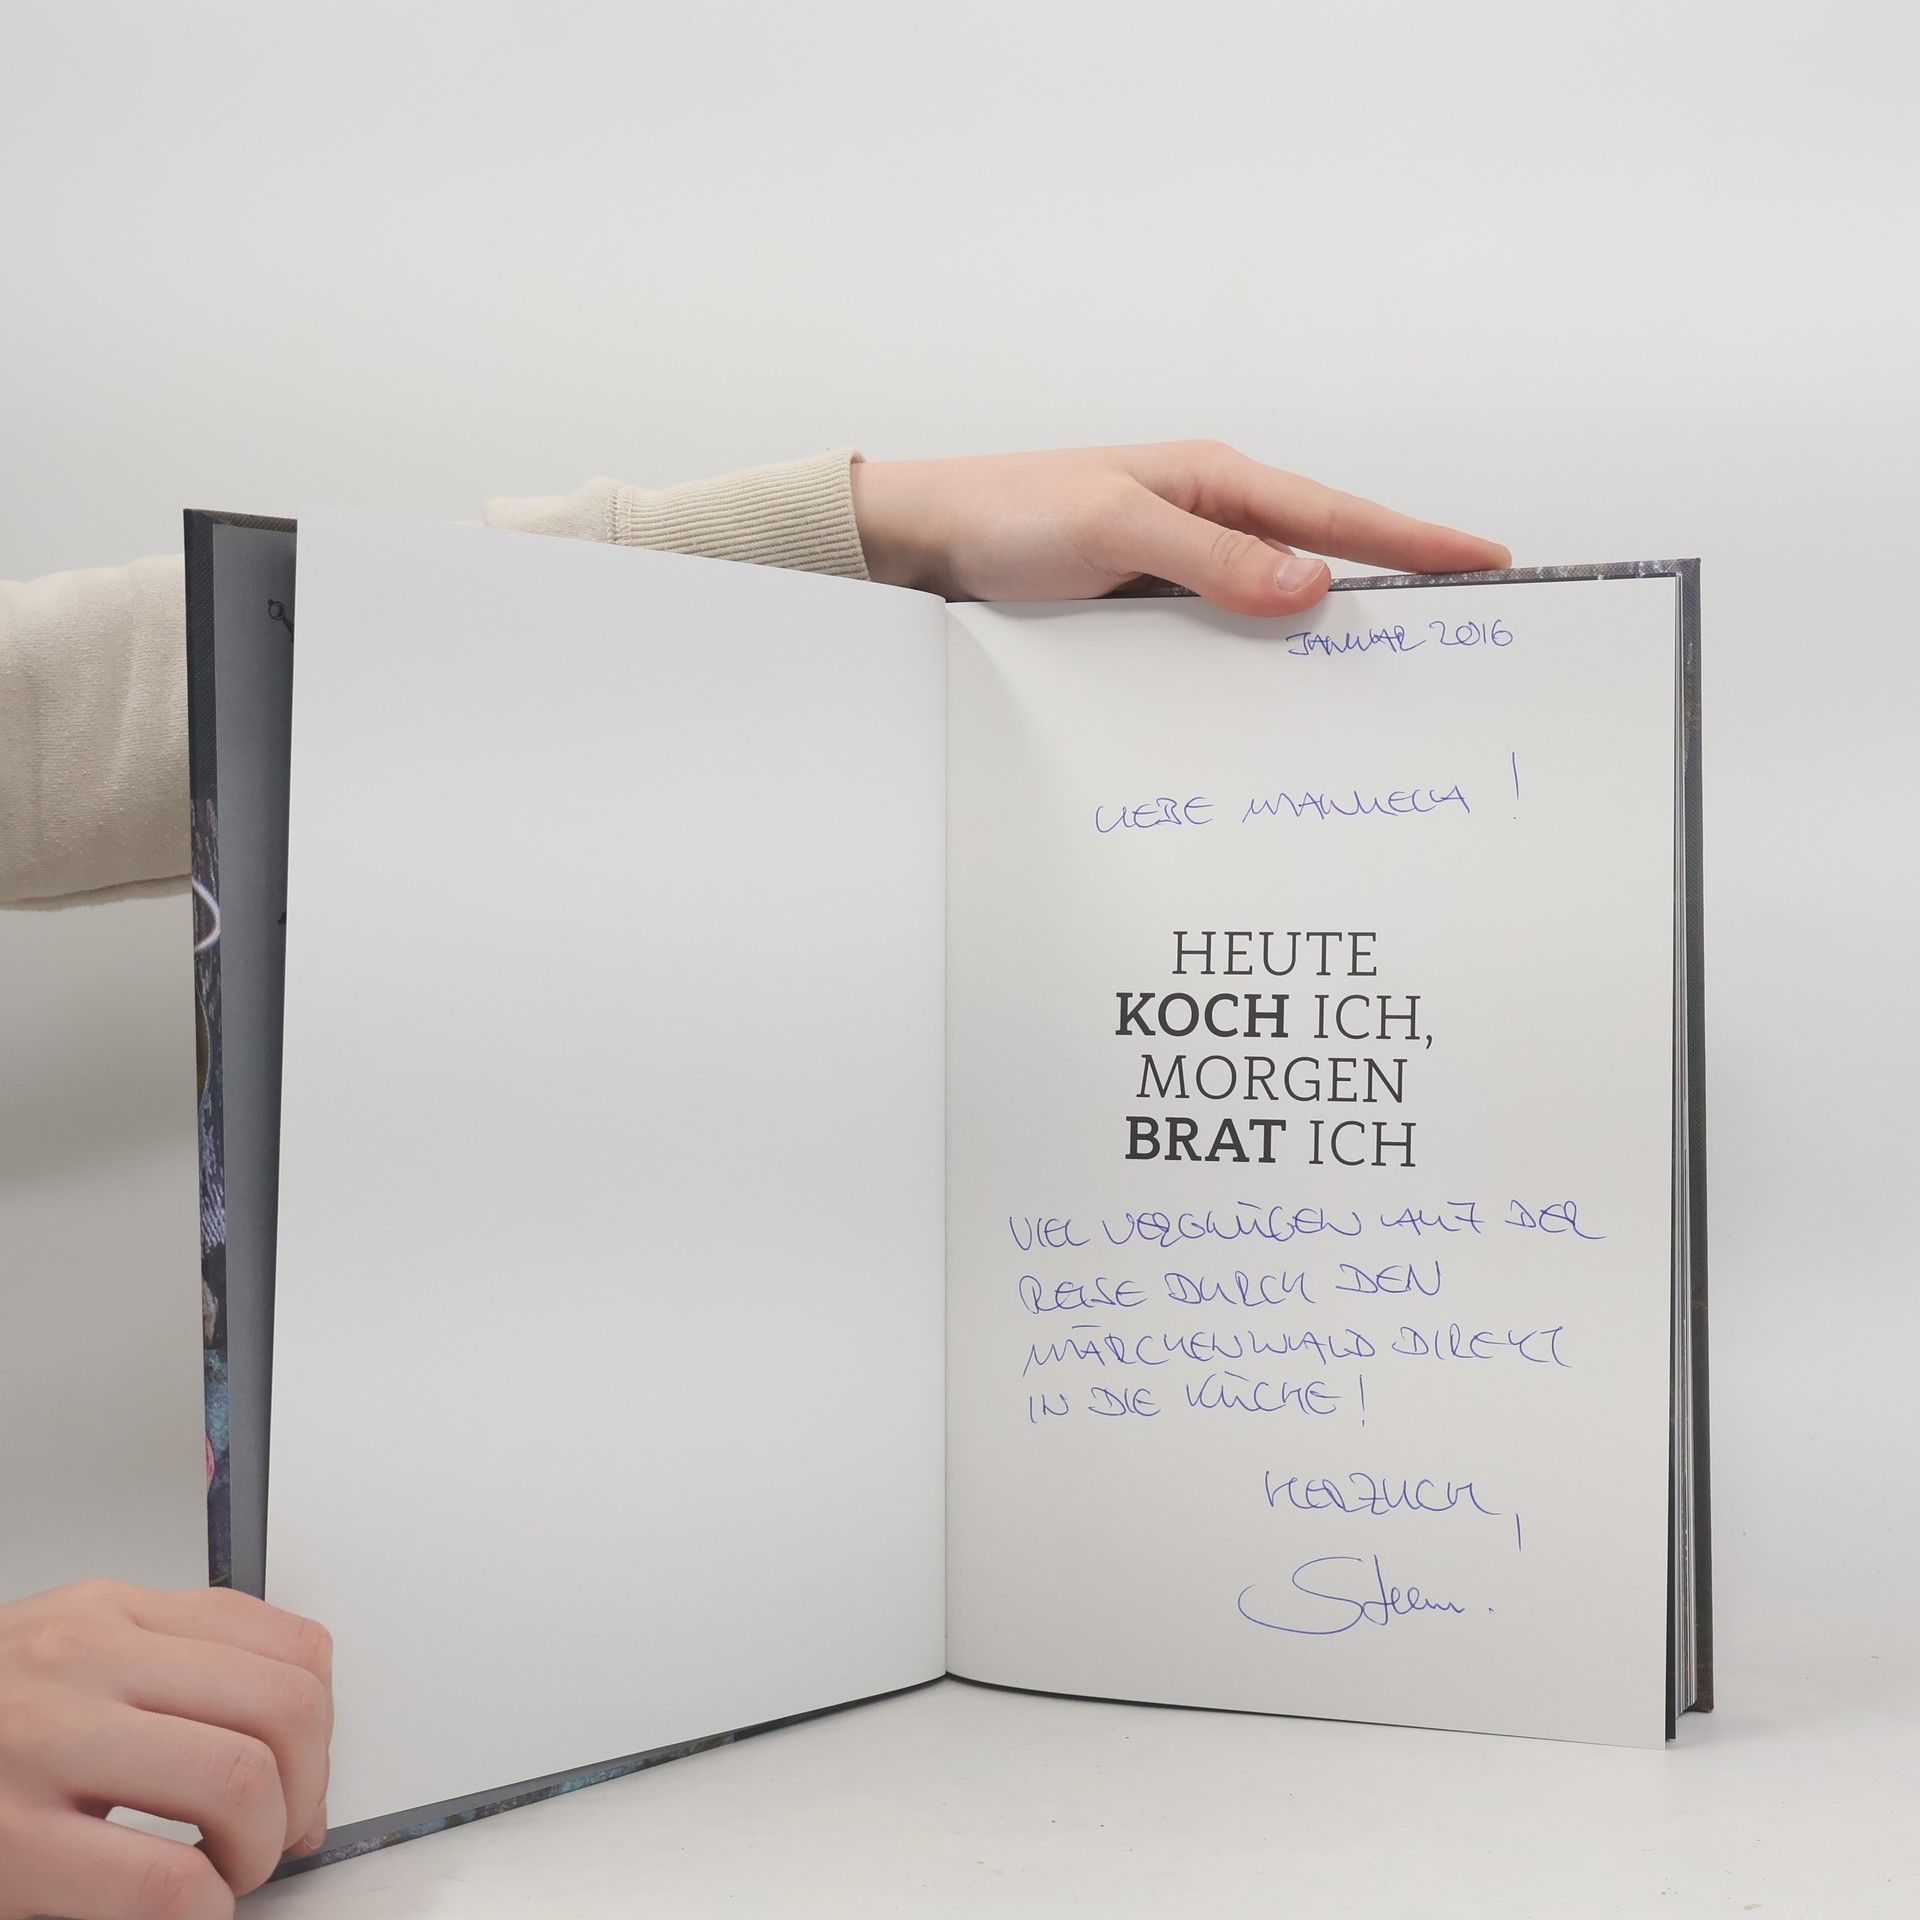 JANUAR 2016
LIEBE MANUELA !
HEUTE
KOCH ICH,
MORGEN
BRAT ICH
VIEL VERGNÜGEN AUF DER
REISE DURCH DEN
MÄRCHENWALD DIREKT
IN DIE KÜCHE !
HERZLICH,